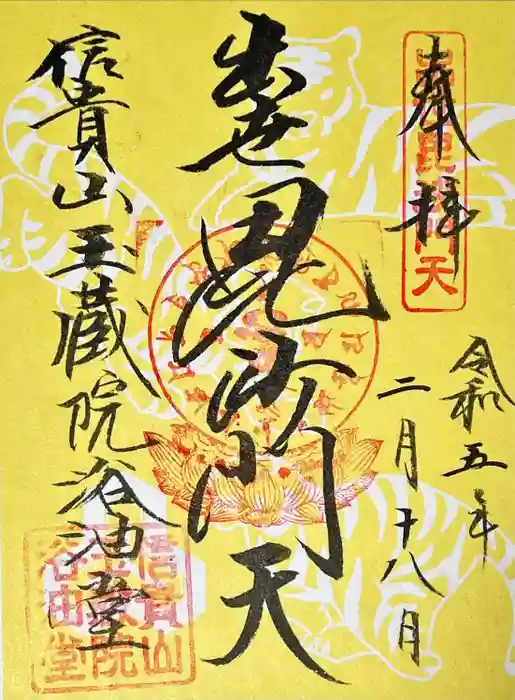 奉拝
令和五年
二月十八月
出世毘沙門天
信貴山玉蔵院浴油堂
信貴山
玉蔵院
浴油堂